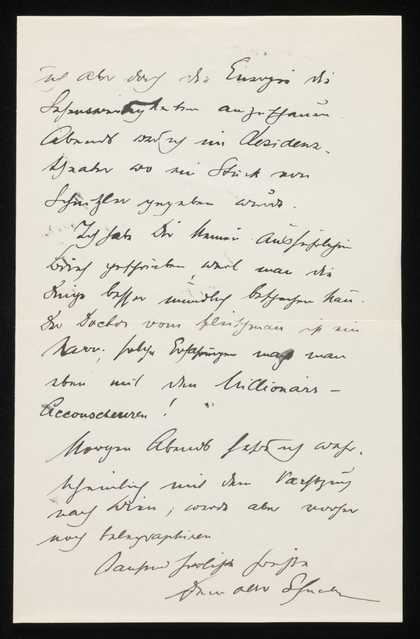 ich aber doch die Energie die
Sehenswürdigkeiten anzuschauen.
Abends war ich im Residenz-
theater wo ein Stück von
Schnitzler gegeben wurde.
Ich habe Dir keinen ausführlichen
Brief geschrieben, weil man die
Dinge besser mündlich besprechen kann.
Der Doctor vom Fleischman ist ein
Narr, solche Erfahrungen mag man
eben mit den Millionärs-
Accoucheuren!
Morgen Abends fahre ich wahr-
scheinlich mit dem Nachtzug
nach Wien, werde aber vorher
noch telegraphiren
Tausend herzliche Grüsse
Dein alter